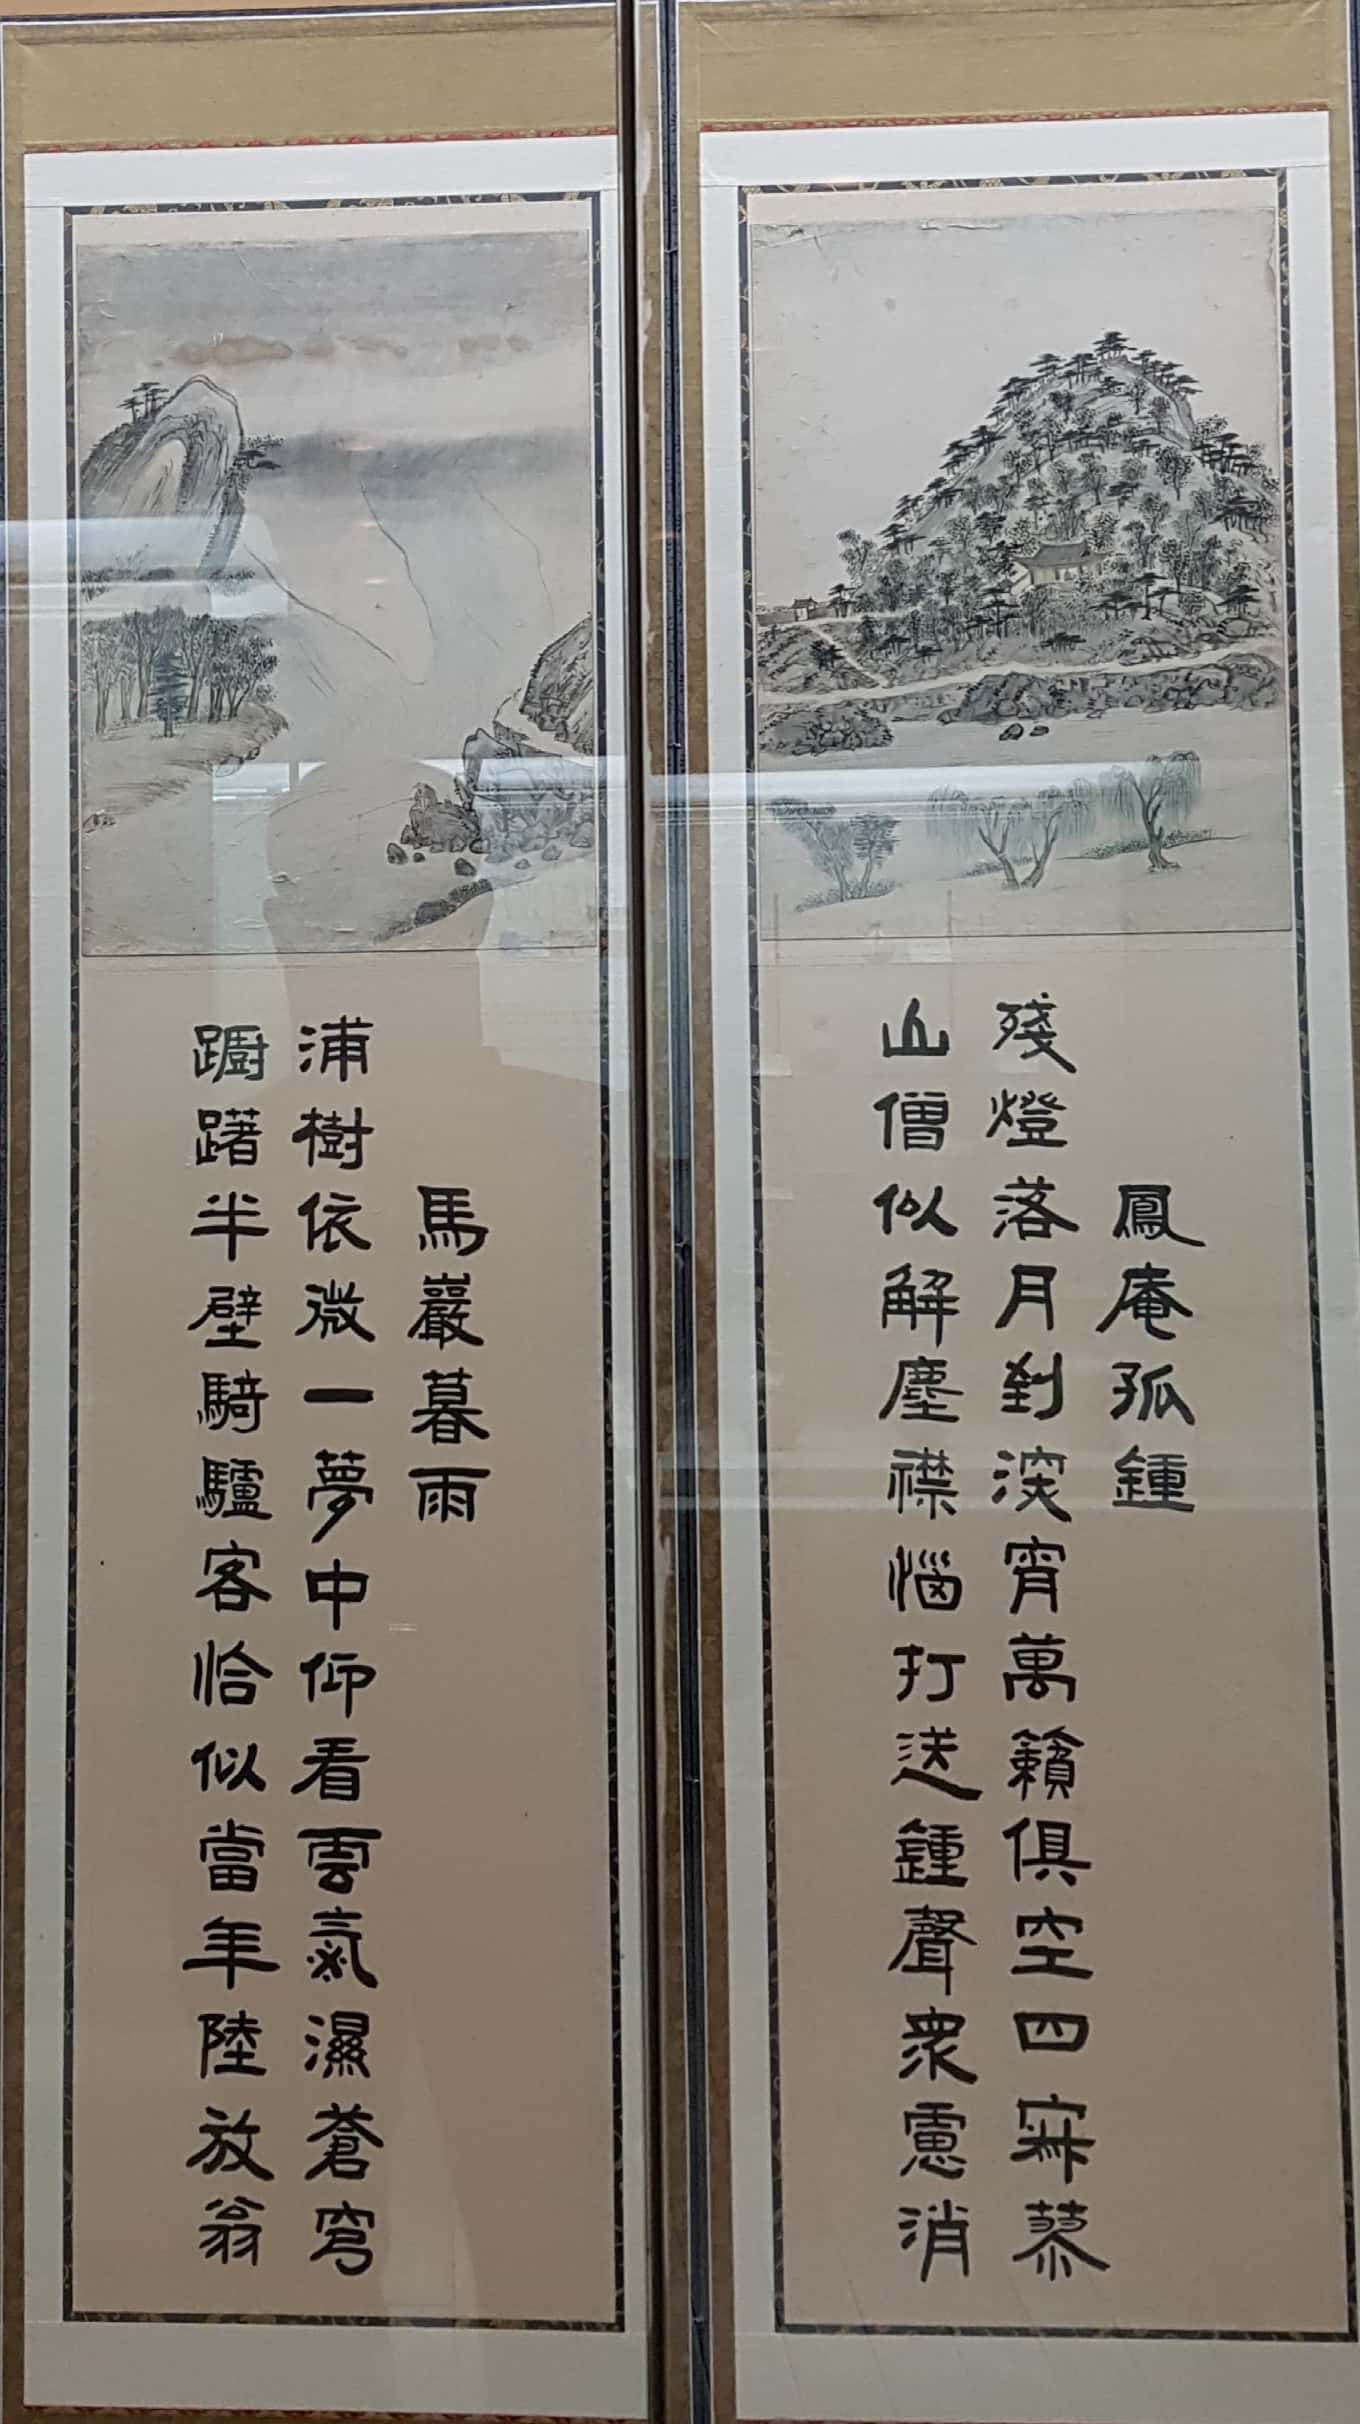 鳳庵孤鍾
殘燈落月刹深宵萬籟俱空四寂蓼
山僧似解塵襟惱打送鍾聲衆慮消
馬巖暮雨
浦樹依微一夢中仰看雲氣濕蒼穹
躕躇半壁騎驢客恰似當年陸放翁